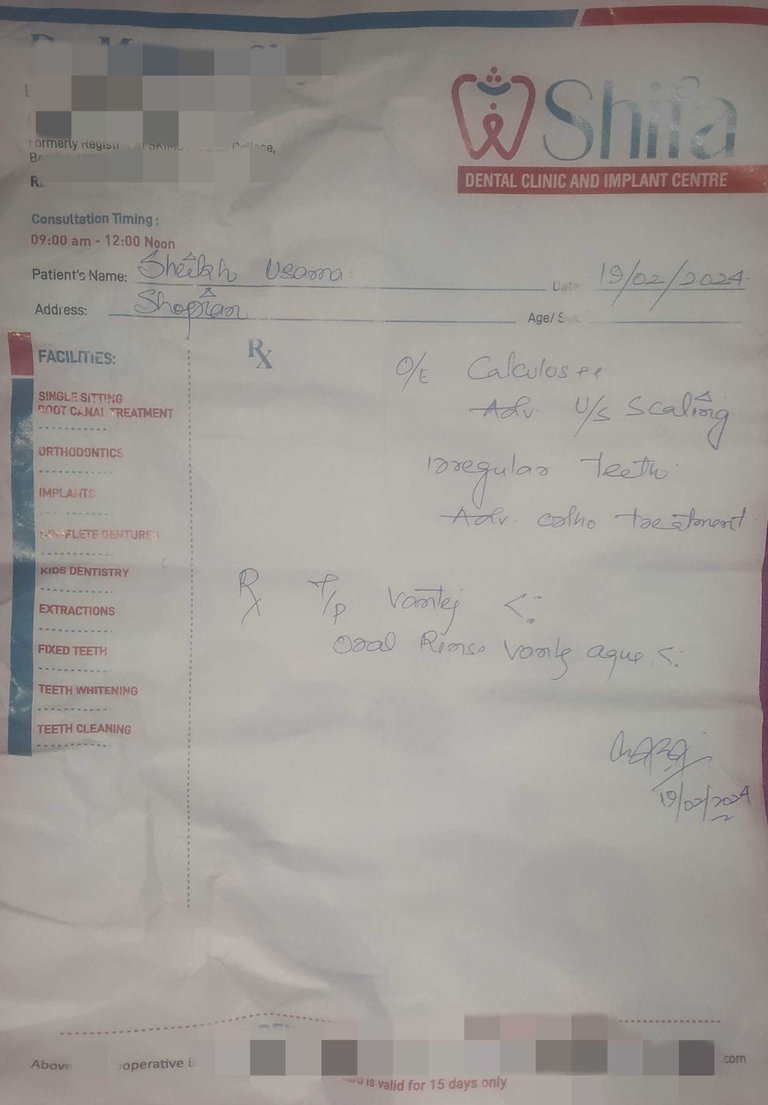 Shifa
DENTAL CLINIC AND IMPLANT CENTRE
Formerly
College,
Consultation Timing :
09:00 am - 12:00 Noon
Patient's Name: Sheikh Usama Date: 19/02/2024
Address: Shopian Age/
FACILITIES:
SINGLE SITTING
ROOT CANAL TREATMENT
ORTHODONTICS
IMPLANTS
COMPLETE DENTURES
KIDS DENTISTRY
EXTRACTIONS
FIXED TEETH
TEETH WHITENING
TEETH CLEANING
Rx
O/E Calculus ++
Adv. U/S Scaling
Irregular teeth
Adv. ortho treatment
Rx T/P Vantej <:
Oral Rinse Vantej aqua <:
19/02/2024
Above operative .com
is valid for 15 days only